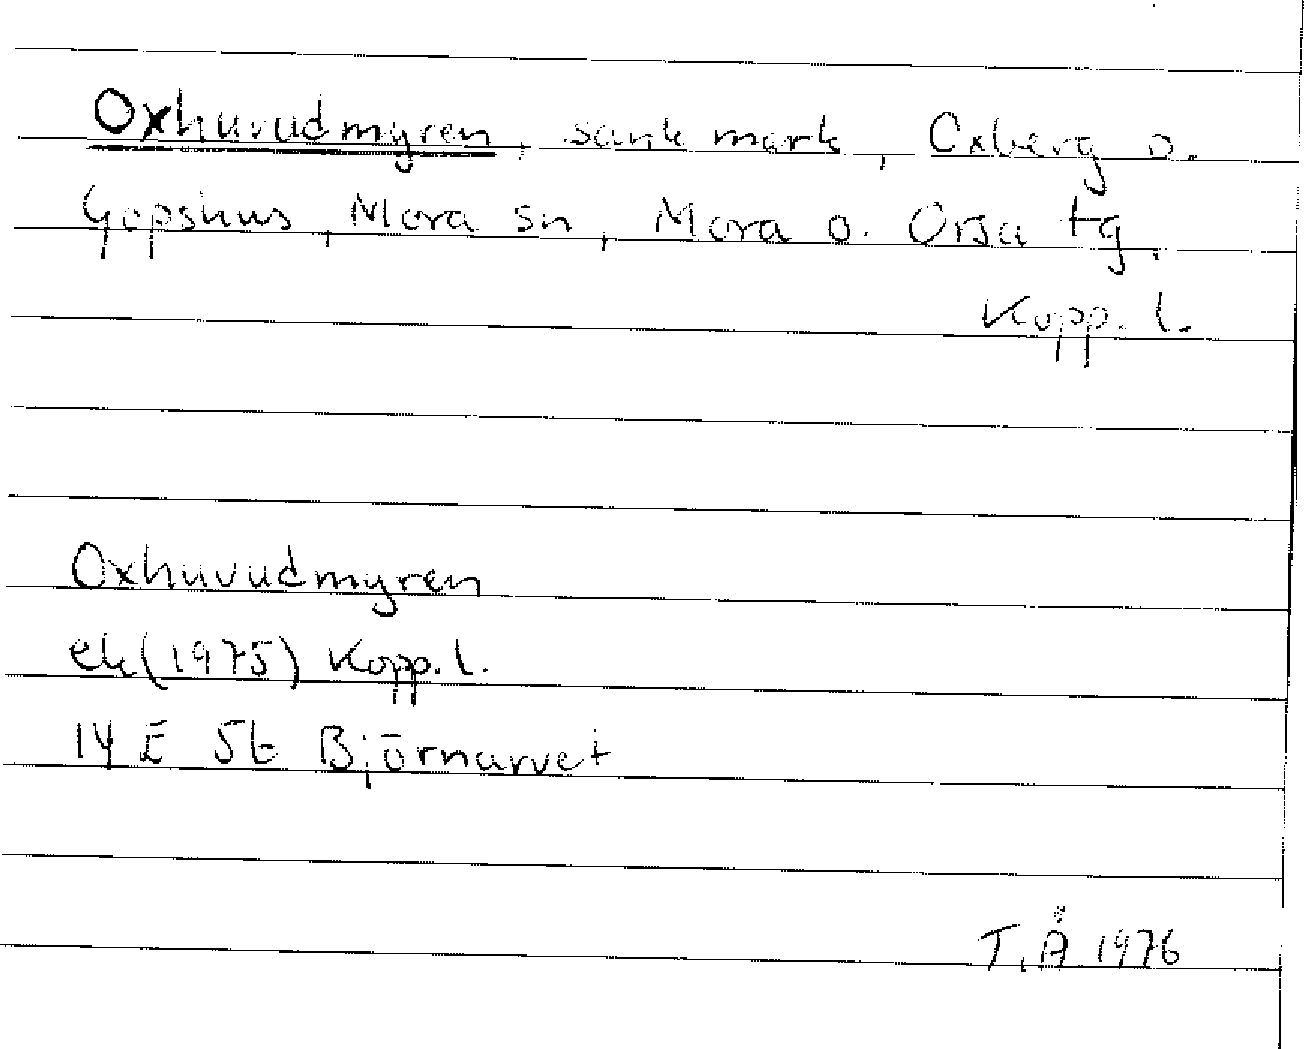 Oxhuvudmyren, sank mark, Oxberg o.
Gopshus, Mora sn, Mora o. Orsa tg.
Kopp. l.
Oxhuvudmyren
ek(1975) Kopp. l.
14 E 5b Björnarvet
T. Å 1976